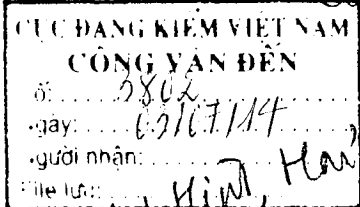 CỤC ĐĂNG KIỂM VIỆT NAM
CÔNG VĂN ĐẾN
ố: 3802
gày: 03/07/14
gười nhận:
ile lưu: